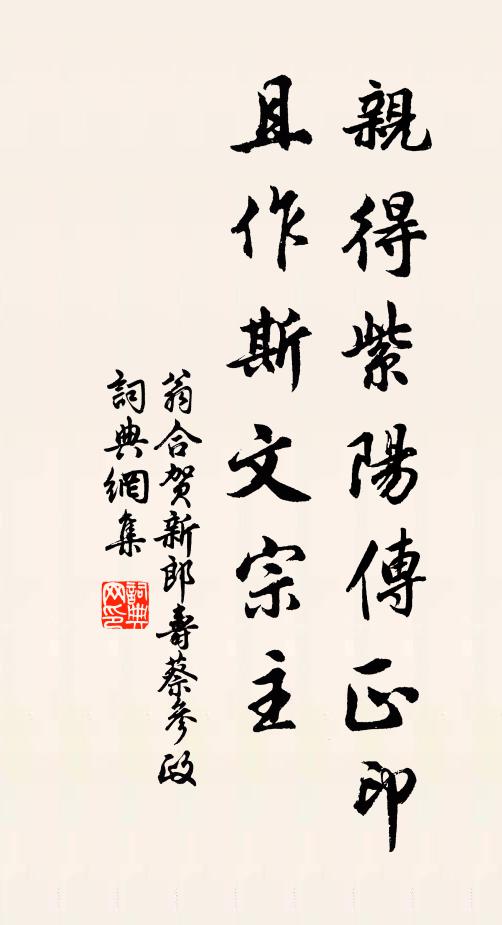 親得紫陽傳正印
且作斯文宗主
翁合賀新郎壽蔡參政
詞典網集
詞典网印